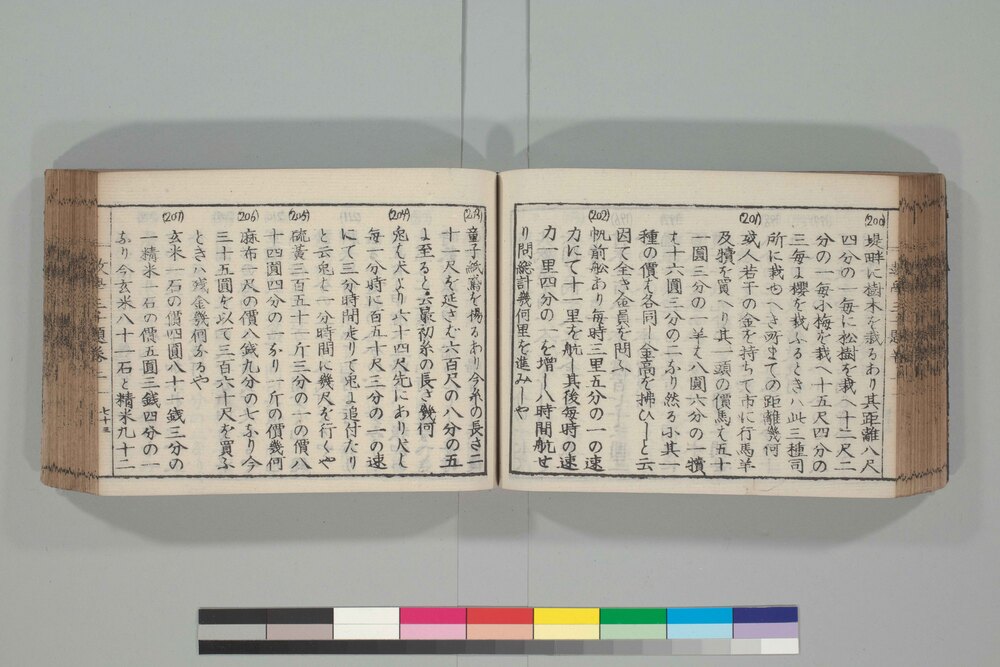 (200)
堤畔に樹木を栽るあり其距離八尺
四分の一每に松樹を栽へ十二尺二
分の一每小梅を栽へ十五尺四分の
三每よ櫻を栽ふるときハ此三種司
所に栽也へき町までの距離幾何
(201)
或人若干の金を持ちて市に行馬羊
及犢を買へり其一頭の價馬え五十
一圓三分の一羊え八圓六分の一犢
え十六圓三分の二なり然る小其一
種の價え各同し金高を拂ひしと云
因て全き金員を問ふ
(202)
帆前舩あり每時三里五分の一の速
力にて十一里を航し其後每時の速
力一里四分の一を增し八時間航せ
り問總計幾何里を進みしや
(203)
童子紙鳶を揚るあり今糸の長さ二
十一尺を延さむ六百尺の八分の五
よ至ると云最初糸の長さ幾何
(204)
兎え犬より六十四尺先にあり犬し
每一分時に百五十尺三分の一の速
にて三分時間走りて兎よ追付たり
と云兎え一分時間に幾尺を行くや
(205)
硫黃三百五十一斤三分の一の價八
十四圓四分の一なり一斤の價幾何
(206)
麻布一尺の價八錢九分の七なり今
三十五圓を以て三百六十尺を買ふ
ときハ残金幾何なるや
(207)
玄米一石の價四圓八十一錢三分の
一精米一石の價五圓三錢四分の一
なり今玄米八十一石と精米九十二
七十三